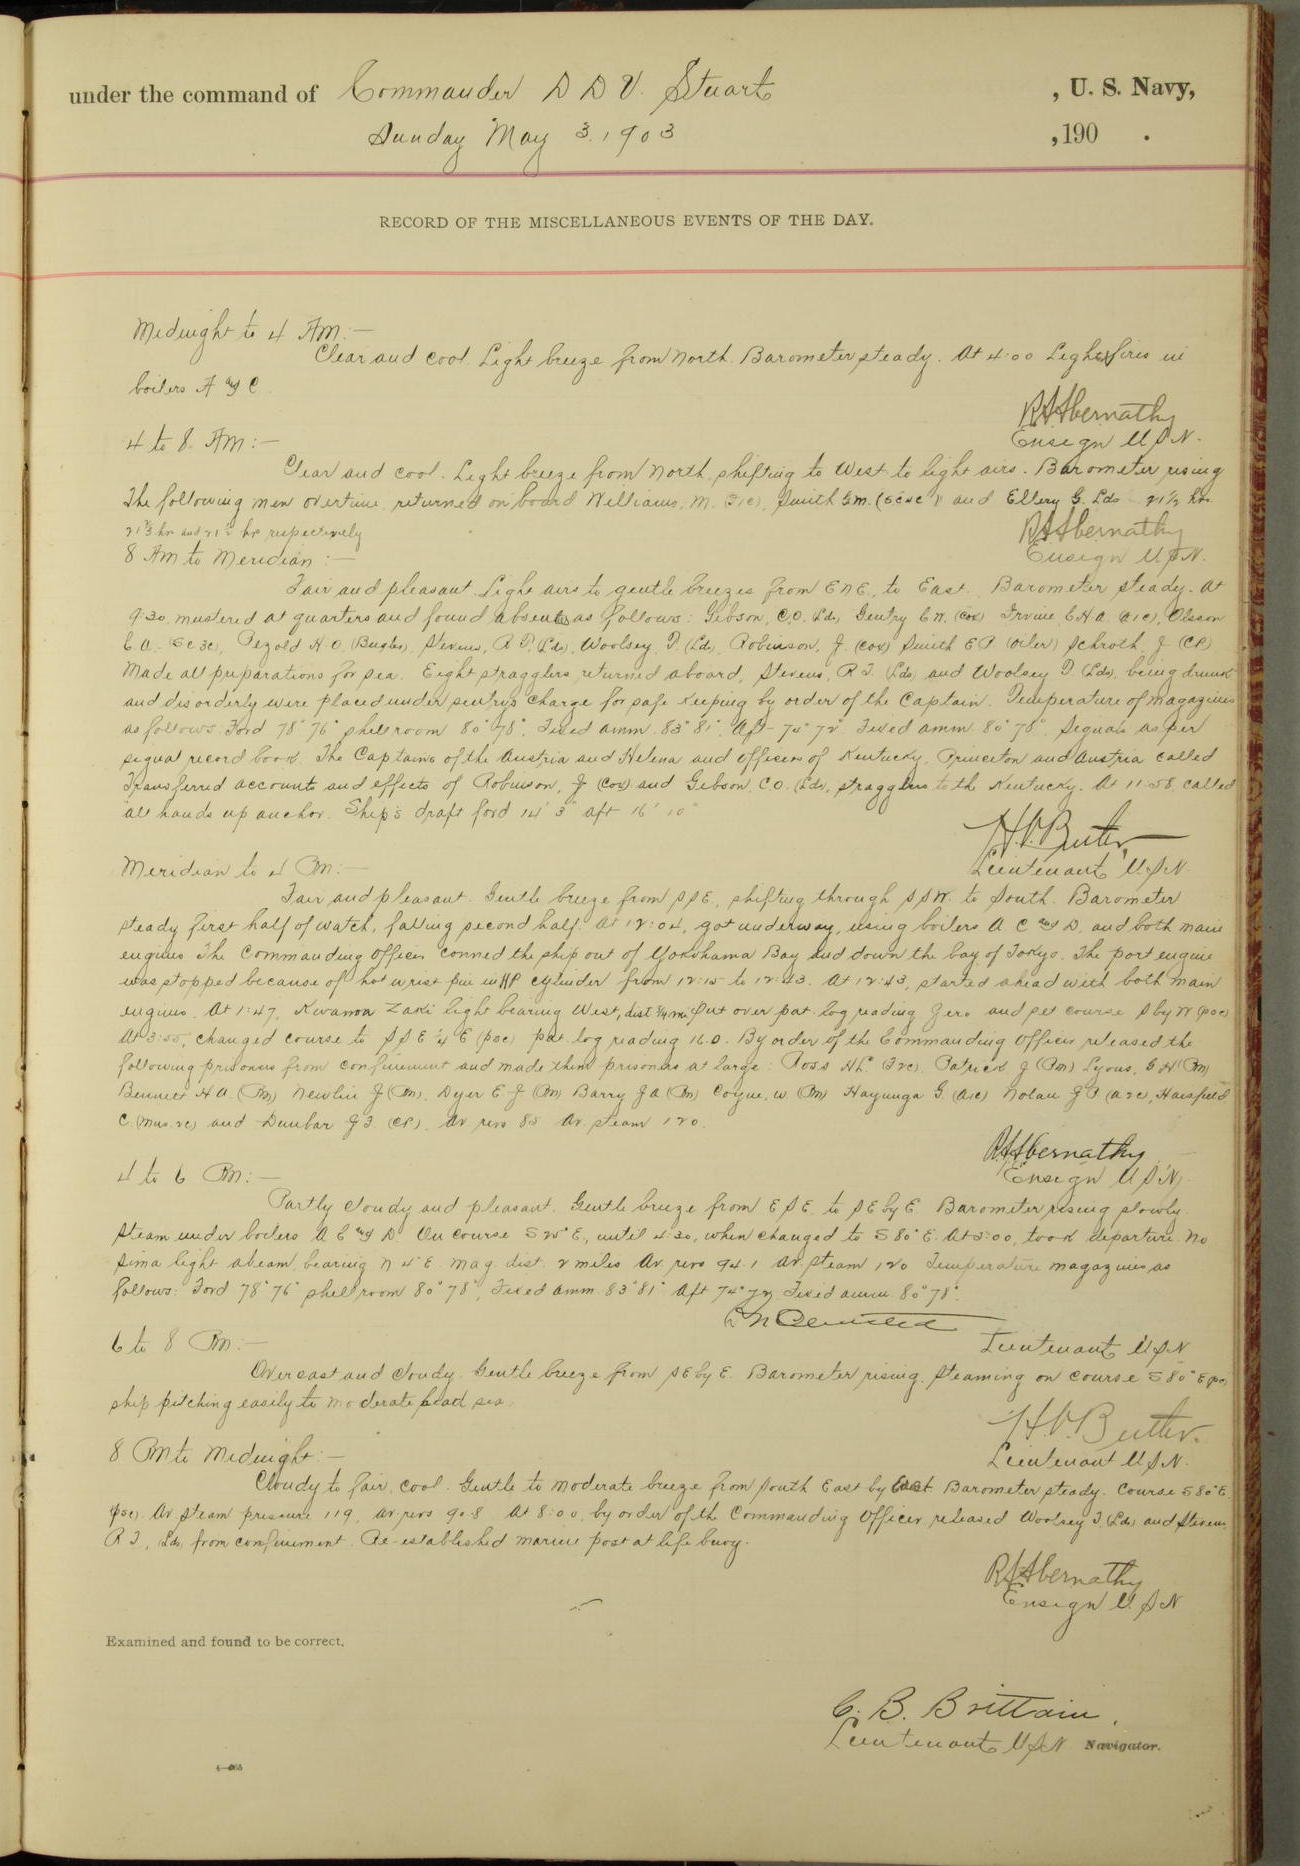 under the command of Commander D D V. Stuart , U. S. Navy,
Sunday May 3. 1903 , 190 .
RECORD OF THE MISCELLANEOUS EVENTS OF THE DAY.
Midnight to 4 AM:—
Clear and cool. Light breeze from North. Barometer steady. At 4:00 Lighted fires in
boilers A & C.
R Abernathy
Ensign U.S.N.
4 to 8 AM:—
Clear and cool. Light breeze from North, shifting to West to light airs. Barometer rising
The following men overtime returned on board Williams, M. Smith G.M. and Ellery G. Lds 21½ hrs
hr respectively
R Abernathy
Ensign U.S.N.
8 AM to Meridian:—
Fair and pleasant. Light airs to gentle breezes from ENE, to East. Barometer steady. At
9:30 mustered at quarters and found absentees as follows: Gibson, C.O. (Lds), Gentry E.N. (Cox) Irvine E.H.A. (A1C), Olsson
C.A. (Sc 3c), Pezold H.O. (Bugler), Stevens, R.T. (Lds), Woolsey T. (Lds), Robinson, J. (Cox) Smith E.P. (Oiler) Schroth, J. (CP)
Made all preparations for sea. Eight stragglers returned aboard, Stevens, R.T. (Lds) and Woolsey T (Lds), being drunk
and disorderly were placed under sentry's charge for safe keeping by order of the Captain. Temperature of magazines
as follows: Ford 78° 76° shell room 80° 78°, Fixed amm. 83° 81°. Aft 74° 72° Fixed amm 80° 78°. Signals as per
signal record book. The Captains of the Austria and Helena and Officers of Kentucky, Princeton and Austria called
Transferred accounts and effects of Robinson, J (Cox) and Gibson C.O. (Lds), stragglers to the Kentucky. At 11:58, called
all hands up anchor. Ship's draft ford 14' 3" aft 16' 10"
H.V. Butler,
Lieutenant U.S.N.
Meridian to 4 PM:—
Fair and pleasant. Gentle breeze from SSE, shifting through SSW. to South. Barometer
steady first half of watch, falling second half. At 12:04, got underway, using boilers A C & D, and both main
engines The Commanding Officer conned the ship out of Yokohama Bay and down the bay of Tokyo. The port engine
was stopped because of hot wrist pin in HP cylinder from 12:15 to 12:43. At 12:43, started ahead with both main
engines. At 1:47, Kwannon Zaki light bearing West, dist ¾ mi. Put over pat. log reading Zero and set course S by W (psc)
At 3:55, changed course to SSE ¼ E (psc) pat. log reading 16.0. By order of the Commanding Officer released the
following prisoners from confinement and made them prisoners at large: Ross H.L. Patrick J (Pm) Lyons, G.H (Pm)
Bennett H.A. (Pm) Newlin J (Pm), Dyer E.J (Pm) Barry J A (Pm) Coyne, W (Pm) Hayunga G. (A1c) Nolan J.P (A2c), Harsfield
C. (Mus. 2c) and Dunbar J.F. (CP). Av revs 85 Av. steam 120.
R Abernathy
Ensign U.S.N.
4 to 6 PM:—
Partly cloudy and pleasant. Gentle breeze from ESE. to SE by E. Barometer rising slowly.
Steam under boilers A C & D On course S 25° E., until 4:30, when changed to S 80° E. At 5:00, took departure No
Sima light abeam, bearing N 4° E mag. dist. 2 miles Av. revs 94.1 Av. steam 120 Temperature magazines as
follows: Ford 78° 76° shell room 80° 78°, Fixed amm. 83° 81° Aft 74° 72 Fixed amm 80° 78°.
Lieutenant U.S.N
6 to 8 PM:—
Overcast and cloudy. Gentle breeze from SE by E. Barometer rising. Steaming on course S 80° E (psc)
ship pitching easily to moderate head sea.
H.V. Butler.
Lieutenant U.S.N.
8 PM to Midnight:—
Cloudy to fair, cool. Gentle to moderate breeze from South East by East Barometer steady. Course S 80° E.
(psc). Av steam pressure 119, av. revs 90.8 At 8:00, by order of the Commanding Officer released Woolsey T. (Lds) and Stevens
R.T., Lds, from confinement. Re-established marine post at life buoy.
R Abernathy
Ensign U.S.N
Examined and found to be correct.
C. B. Brittain,
Lieutenant U.S.N Navigator.